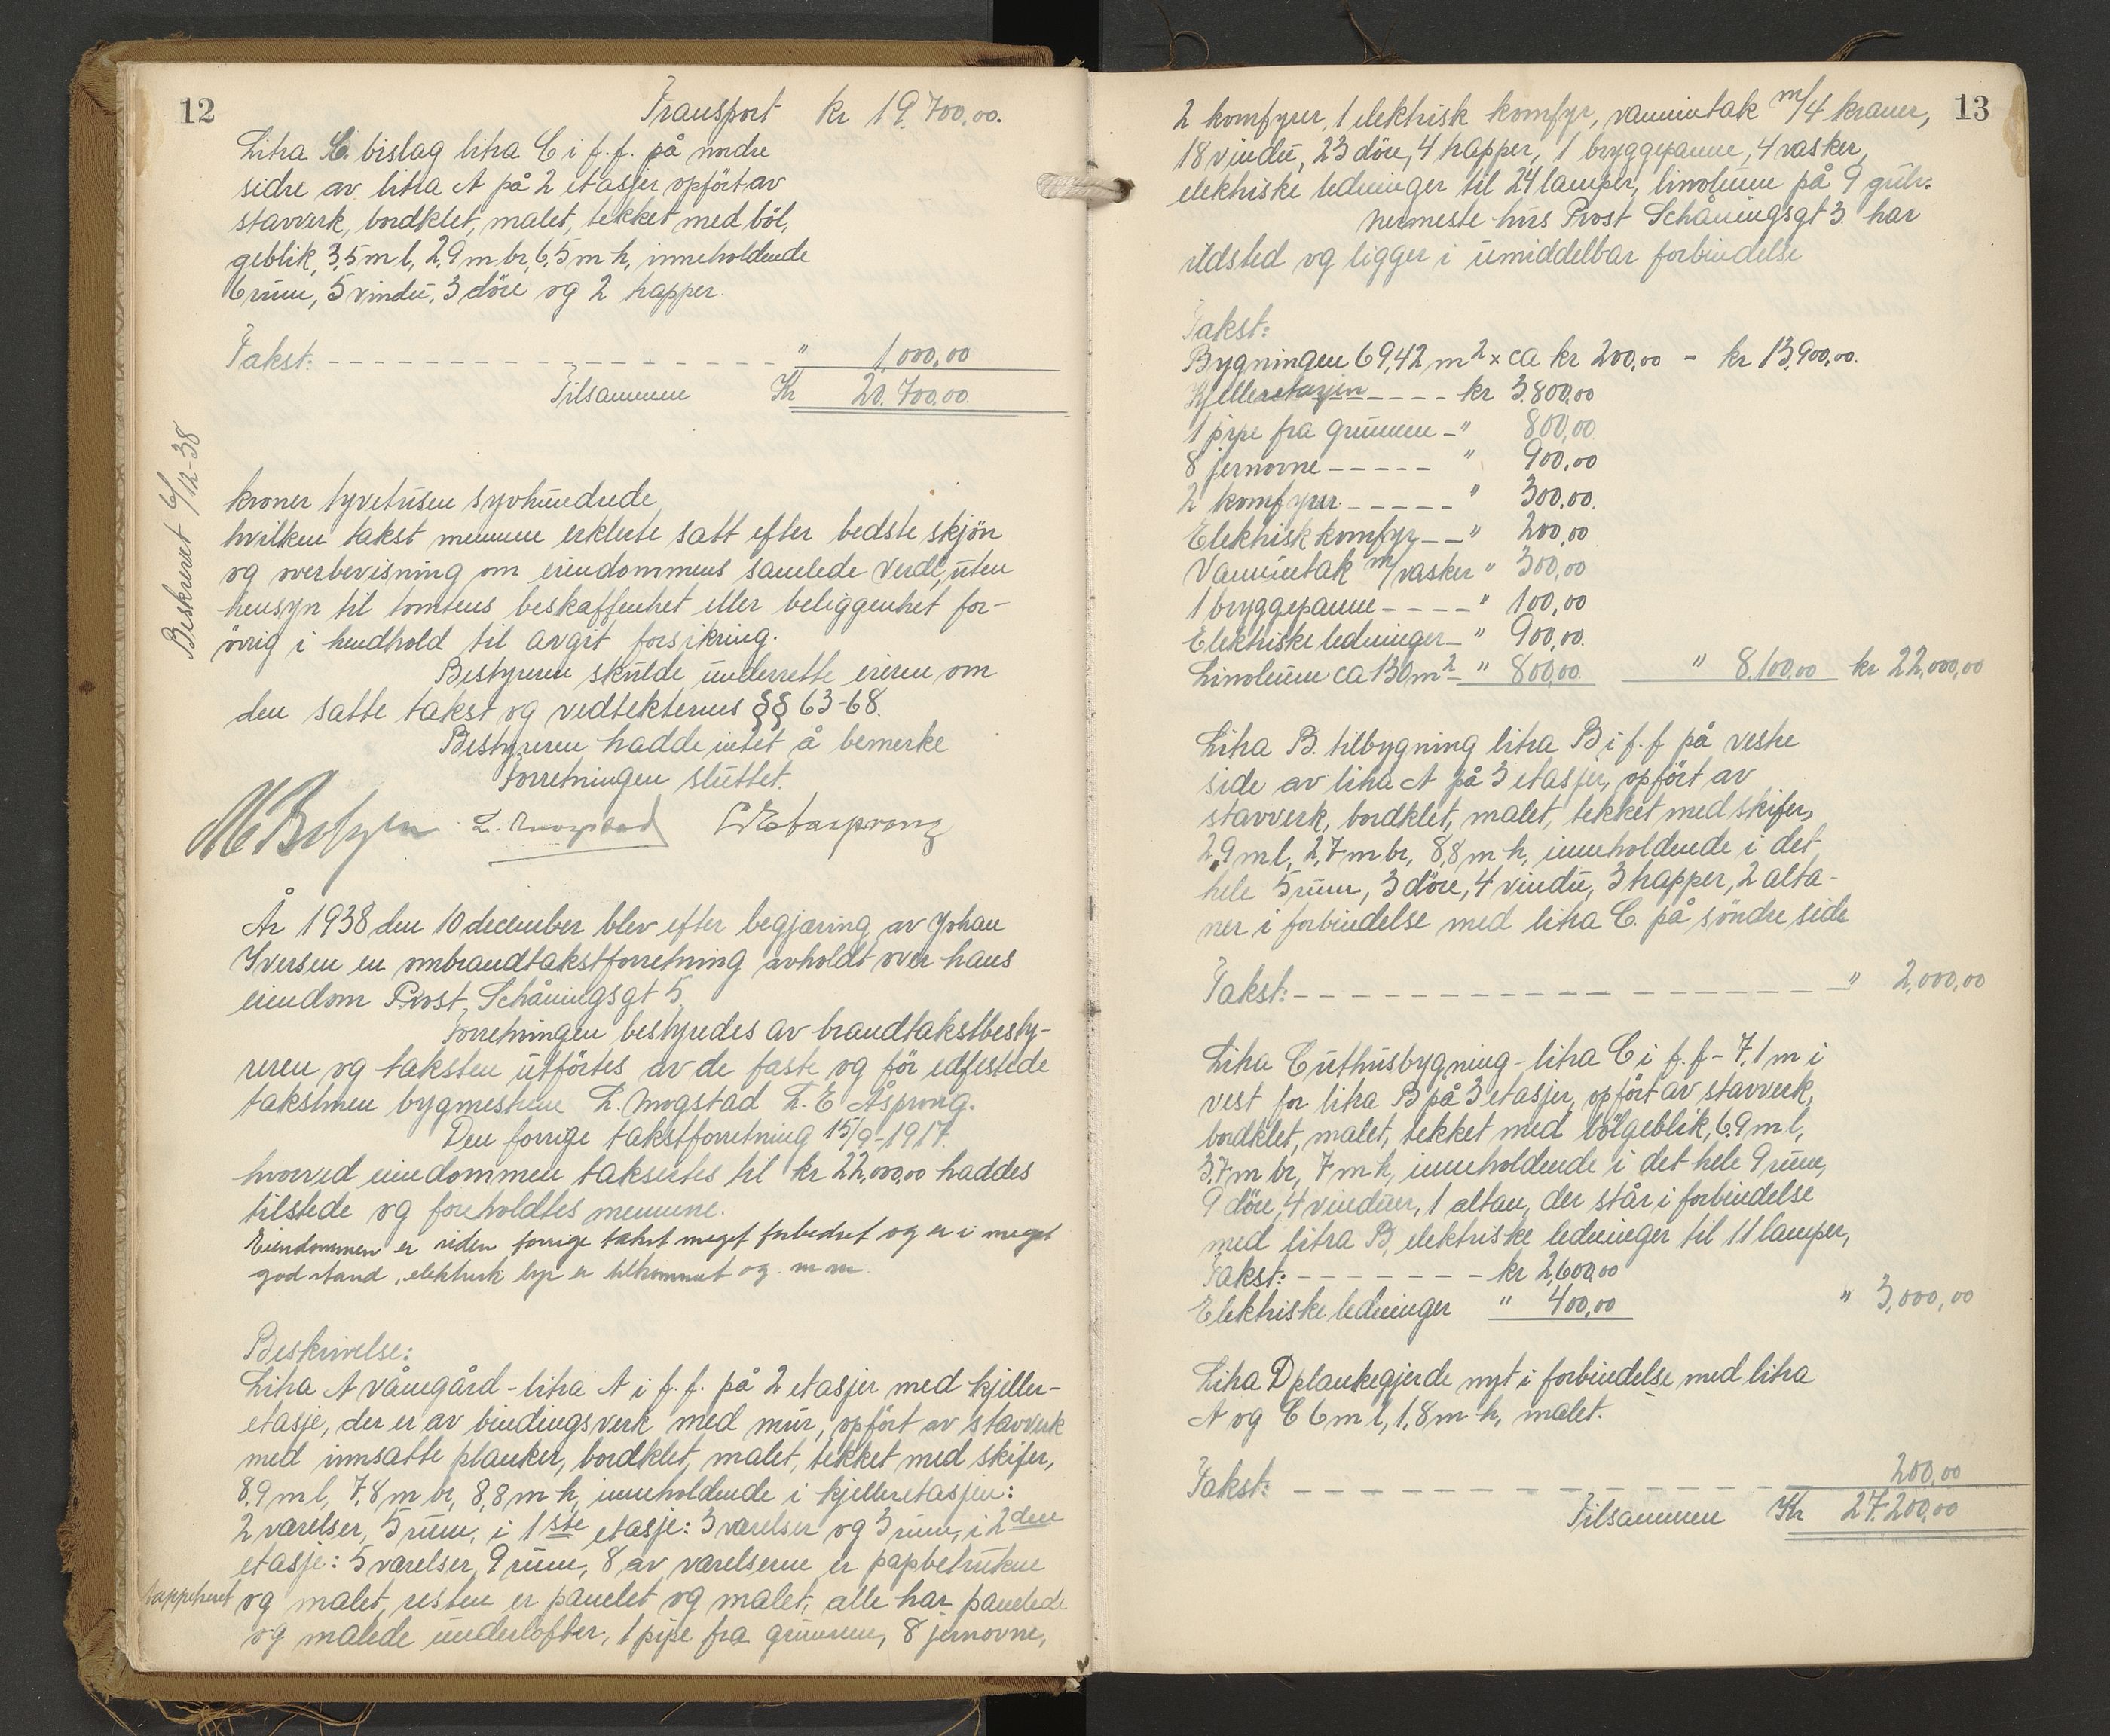 12
Transport kr 19.700,00.
Litra C. bislag litra C i f.f. på nordre
sidre av litra A på 2 etasjer opført av
stavverk, bordklet, malet, tekket med böl,
geblik, 3,5 m l, 2,9 m br, 6,5 m h, inneholdende
6 rum, 5 vindu, 3 döre og 2 trapper.
Takst: " 1,000,00
Tilsammen Kr 20.700,00.
Beskrevet 6/12-38
kroner tyvetusen syvhundrede
hvilken takst mennene erklerte satt efter bedste skjön
og overbevisning om eiendommens samlede verdi, uten
hensyn til tomtens beskaffenhet eller beliggenhet for-
övrig i hendhold til avgit forsikring.
Bestyreren skulde underrette eieren om
den satte takst og vedtekternes §§ 63-68.
Bestyreren hadde intet å bemerke
Forretningen sluttet.
År 1938 den 10 december blev efter begjæring av Johan
Iversen en ombrandtakstforretning avholdt over hans
eiendom Prost Schåningsgt 5.
Forretningen bestyredes av brandtakstbesty-
reren og taksten utförtes av de faste og för edfestede
takstmen bygmestrene L. Mogstad L. E Åsprong.
Den forrige takstforretning 15/9-1917.
hvorved eiendommen taksertes til kr 22,000,00 haddes
tilstede og foreholdtes mennene.
Eiendommen er siden forrige takst meget forbedret og er i meget
god stand, elektrisk lys er tilkommet og m m.
Beskrivelse:
Litra A våningård - litra A i f.f. på 2 etasjer med kjeller-
etasje, der er av bindingsverk med mur, opfört av stavverk
med innsatte planker, bordklet, malet, tekket med skifer,
8,9 m l, 7,8 m br, 8,8 m h, inneholdende i kjelleretasjen:
2 værelser, 5 rum, i 1ste etasje: 3 værelser og 3 rum, i 2den
etasje: 5 værelser, 9 rum, 8 av værelserne er papbetrukne
tappetseret og malet, resten er panelet og malet, alle har panelede
og malede underlofter, 1 pipe fra grunnen, 8 jernovne,
13
2 komfyrer, 1 elektrisk komfyr, vanninntak m/4 kraner,
18 vindu, 23 döre, 4 trapper, 1 bryggepanne, 4 vasker,
elektriske ledninger til 24 lamper, linoleum på 9 gulv.
Nermeste hus Prost Schåningsgt 3. har
ildsted og ligger i umiddelbar forbindelse
Takst:
Bygningen 69,42 m2 x ca kr 200,00 - kr 13,900,00.
Kjelleretasjen kr 3.800,00
1 pipe fra grunnen " 800,00
8 jernovne " 900,00
2 komfyrer " 300,00.
Elektrisk komfyr " 200,00
Vanninntak m/vasker " 300,00
1 bryggepanne " 100,00
Elektriske ledninger " 900,00.
Linoleum ca 130 m2 " 800,00. " 8,100,00 kr 22,000,00
Litra B. tilbygning litra B i f.f på vestre
side av litra A på 3 etasjer, opfört av
stavverk, bordklet, malet, tekket med skifer,
2,9 m l, 2,7 m br, 8,8 m h, inneholdende i det
hele 5 rum, 3 döre, 4 vindu, 3 trapper, 2 alta-
ner i forbindelse med litra C. på söndre side
Takst: " 2,000,00
Litra C uthusbygning - litra C i f.f - 7,1 m i
vest for litra B på 3 etasjer, opfört av stavverk,
bordklet, malet, tekket med bölgeblik, 6,9 m l,
3,7 m br, 7 m h, inneholdende i det hele 9 rum,
9 döre, 4 vinduer, 1 altan, der står i forbindelse
med litra B, elektriske ledninger til 11 lamper,
Takst: kr 2,600,00
Elektriske ledninger " 400,00 " 3,000,00
Litra D plankegjerde nyt i forbindelse med litra
A og C 6 m l, 1,8 m h, malet.
Takst: 200,00
Tilsammen Kr 27.200,00